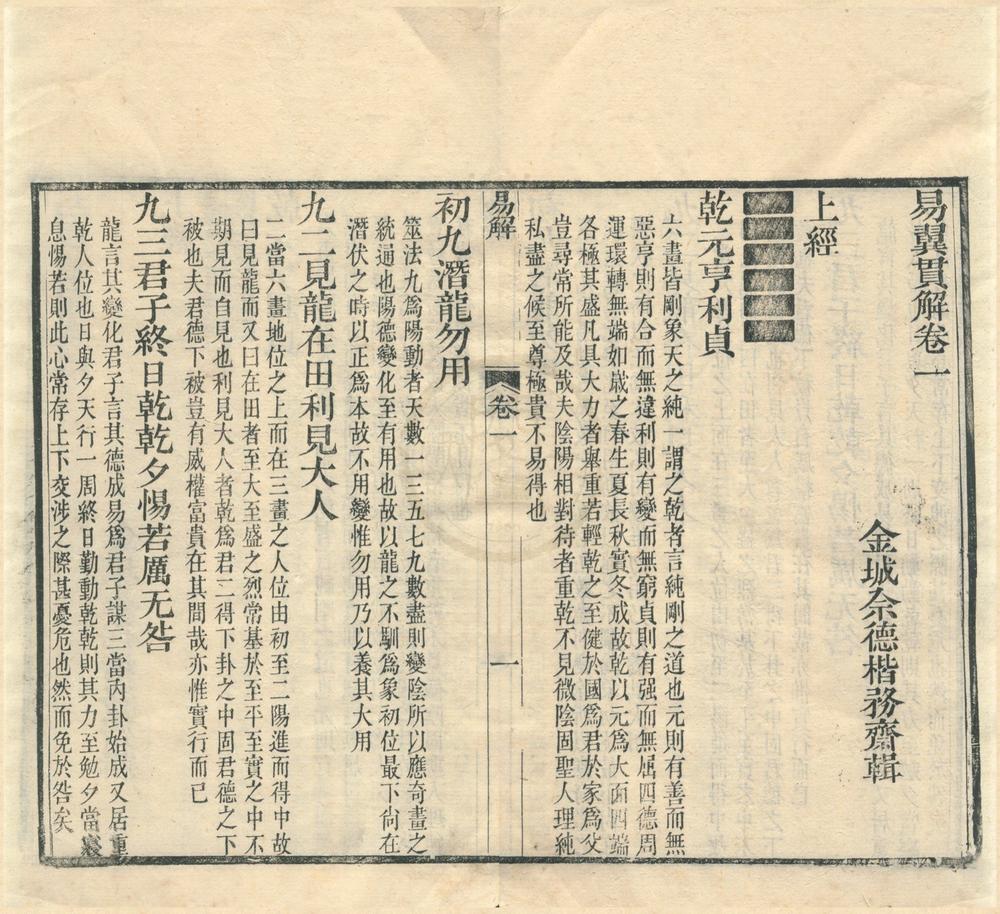 易翼貫解卷一
金城佘德楷務齋輯
上經
乾元亨利貞
六畫皆剛象天之純一謂之乾者言純剛之道也元則有善而無
惡亨則有合而無違利則有變而無窮貞則有强而無屈四德周
運環轉無端如嵗之春生夏長秋實冬成故乾以元爲大面四端
各極其盛凡具大力者舉重若輕乾之至健於國爲君於家爲父
豈尋常所能及哉夫陰陽相對待者重乾不見微陰固聖人理純
私盡之候至尊極貴不易得也
易解
卷一
一
初九潛龍勿用
筮法九爲陽動者天數一三五七九數盡則變陰所以應奇畫之
統通也陽德變化至有用也故以龍之不馴爲象初位最下尙在
潛伏之時以正爲本故不用變惟勿用乃以養其大用
九二見龍在田利見大人
二當六畫地位之上而在三畫之人位由初至二陽進而得中故
曰見龍而又曰在田者至大至盛之烈常基於至平至實之中不
期見而自見也利見大人者乾爲君二得下卦之中固君德之下
被也夫君德下被豈有威權富貴在其間哉亦惟實行而已
九三君子終日乾乾夕惕若厲无咎
龍言其變化君子言其德成易爲君子謀三當内卦始成又居重
乾人位也日與夕天行一周終日勤動乾乾則其力至勉夕當寢
息惕若則此心常存上下交涉之際甚憂危也然而免於咎矣